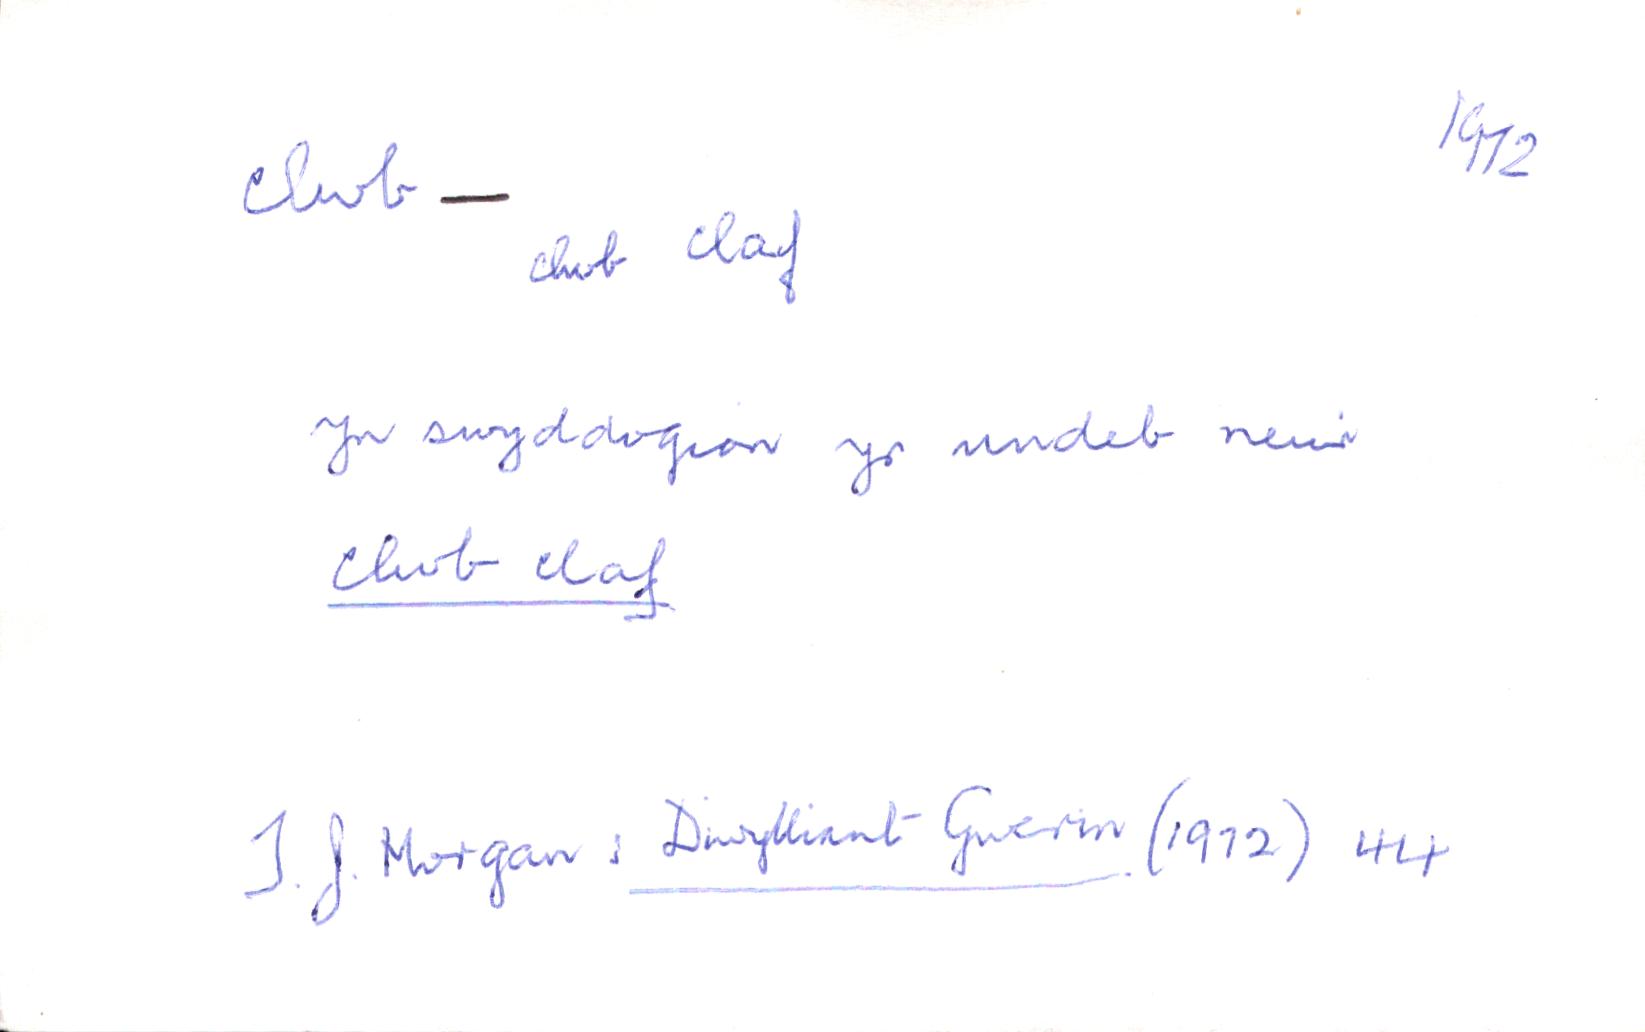 1972
clwb —
clwb claf
yn swyddogion yr undeb neu'r
clwb claf
T. J. Morgan : Diwylliant Gwerin (1972) 44